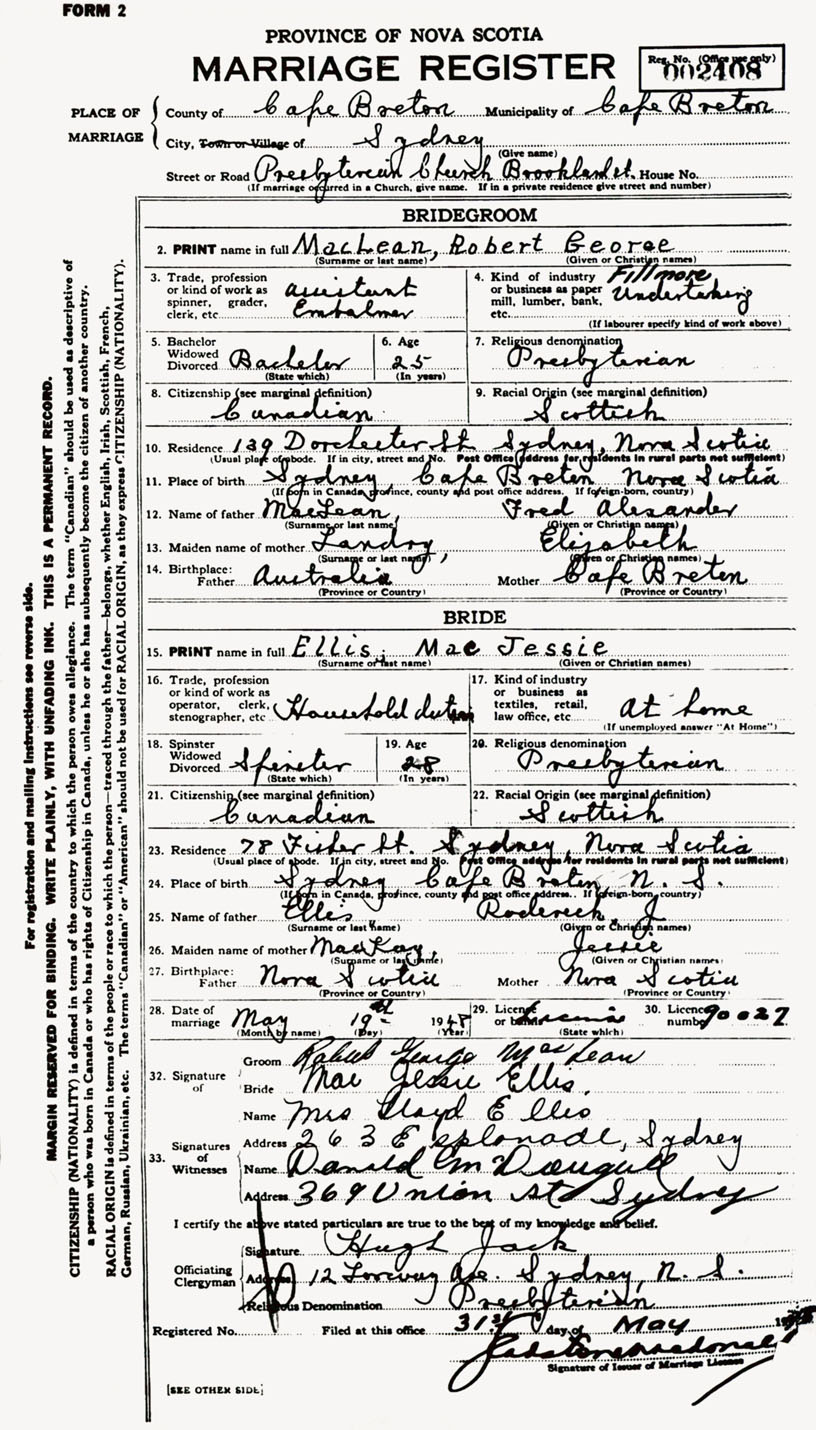 FORM 2
PROVINCE OF NOVA SCOTIA
MARRIAGE REGISTER
Reg. No. (Office use only)
002408
PLACE OF MARRIAGE
County of Cape Breton Municipality of Cape Breton
City, Town or Village of Sydney
(Give name)
Street or Road Presbyterian Church Brookland St. House No.
(If marriage occurred in a Church, give name. If in a private residence give street and number)
BRIDEGROOM
2. PRINT name in full MacLean, Robert George
(Surname or last name) (Given or Christian names)
3. Trade, profession or kind of work as spinner, grader, clerk, etc. assistant Embalmer
4. Kind of industry or business as paper mill, lumber, bank, etc. Fillmore Undertaking
(If labourer specify kind of work above)
5. Bachelor Widowed Divorced Bachelor
(State which)
6. Age 25
(In years)
7. Religious denomination Presbyterian
8. Citizenship (see marginal definition) Canadian
9. Racial Origin (see marginal definition) Scottish
10. Residence 139 Dorchester St. Sydney, Nova Scotia
(Usual place of abode. If in city, street and No. Post Office address for residents in rural parts not sufficient)
11. Place of birth Sydney, Cape Breton Nova Scotia
(If born in Canada, province, county and post office address. If foreign-born, country)
12. Name of father MacLean, Fred Alexander
(Surname or last name) (Given or Christian names)
13. Maiden name of mother Landry, Elizabeth
(Surname or last name) (Given or Christian names)
14. Birthplace: Father Australia Mother Cape Breton
(Province or Country) (Province or Country)
BRIDE
15. PRINT name in full Ellis, Mae Jessie
(Surname or last name) (Given or Christian names)
16. Trade, profession or kind of work as operator, clerk, stenographer, etc Household duties
17. Kind of industry or business as textiles, retail, law office, etc. At home
(If unemployed answer "At Home")
18. Spinster Widowed Divorced Spinster
(State which)
19. Age 28
(In years)
20. Religious denomination Presbyterian
21. Citizenship (see marginal definition) Canadian
22. Racial Origin (see marginal definition) Scottish
23. Residence 78 Fisher St. Sydney, Nova Scotia
(Usual place of abode. If in city, street and No. Post Office address for residents in rural parts not sufficient)
24. Place of birth Sydney Cape Breton, N. S.
(If born in Canada, province, county and post office address. If foreign-born country)
25. Name of father Ellis Roderick, J
(Surname or last name) (Given or Christian names)
26. Maiden name of mother MacKay, Jessie
(Surname or last name) (Given or Christian names)
27. Birthplace: Father Nova Scotia Mother Nova Scotia
(Province or Country) (Province or Country)
28. Date of marriage May 19th 1948
(Month by name) (Day) (Year)
29. License or banns License
(State which)
30. Licence number 90027
32. Signature of
Groom Robert George MacLean
Bride Mae Jessie Ellis
33. Signatures of Witnesses
Name Mrs Lloyd Ellis
Address 263 Esplonade, Sydney
Name Donald M McDougall
Address 369 Union St Sydney
I certify the above stated particulars are true to the best of my knowledge and belief.
Officiating Clergyman
Signature Hugh Jack
Address 12 Lorway Ave. Sydney, N. S.
Religious Denomination Presbyterian
Registered No. Filed at this office 31st day of May
Signature of Issuer of Marriage License
[SEE OTHER SIDE]
For registration and mailing instructions see reverse side.
MARGIN RESERVED FOR BINDING. WRITE PLAINLY, WITH UNFADING INK. THIS IS A PERMANENT RECORD.
CITIZENSHIP (NATIONALITY) is defined in terms of the country to which the person owes allegiance. The term "Canadian" should be used as descriptive of
a person who was born in Canada or who has rights of Citizenship in Canada, unless he or she has subsequently become the citizen of another country.
RACIAL ORIGIN is defined in terms of the people or race to which the person—traced through the father—belongs, whether English, Irish, Scottish, French,
German, Russian, Ukrainian, etc. The terms "Canadian" or "American" should not be used for RACIAL ORIGIN, as they express CITIZENSHIP (NATIONALITY).